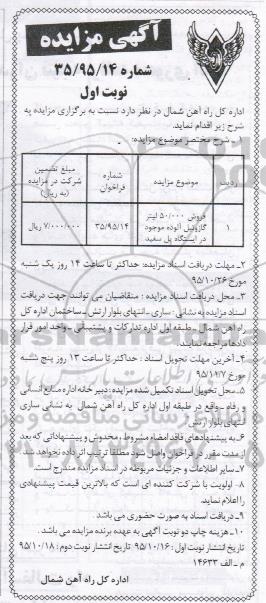 آگهی مزایده
شماره ۳۵/۹۵/۱۴
نوبت اول
اداره کل راه آهن شمال در نظر دارد نسبت به برگزاری مزایده به
شرح زیر اقدام نماید.
۱- شرح مختصر موضوع مزایده:
ردیف
موضوع مزایده
شماره فراخوان
مبلغ تضمین شرکت در مزایده (به ریال)
۱
فروش ۵۰/۰۰۰ لیتر گازوئیل آلوده موجود در ایستگاه پل سفید
۳۵/۹۵/۱۴
۷/۰۰۰/۰۰۰ ریال
۲- مهلت دریافت اسناد مزایده: حداکثر تا ساعت ۱۴ روز یک شنبه
مورخ ۹۵/۱۰/۲۶
۳- محل دریافت اسناد مزایده: متقاضیان می توانند جهت دریافت
اسناد مزایده به نشانی - ساری - انتهای بلوار ارتش - ساختمان اداره کل
راه آهن شمال - طبقه اول اداره تدارکات و پشتیبانی - واحد امور قرار
دادها مراجعه نمایند.
۴- آخرین مهلت تحویل اسناد: حداکثر تا ساعت ۱۳ روز پنج شنبه
مورخ
۵- محل تحویل اسناد تکمیل شده مزایده: دبیر خانه اداره منابع انسانی
و رفاه - واقع در طبقه اول اداره کل راه آهن شمال به نشانی ساری
انتهای بلوار ارتش
۶- به پیشنهادهای فاقد امضاء مشروط، مخدوش و پیشنهاداتی که بعد
از مدت مقرر در فراخوان واصل شود مطلقا ترتیب اثر داده نخواهد شد
۷- سایر اطلاعات و جزئیات مربوطه در اسناد مزایده مندرج است.
۸- اولویت با شرکت کننده ای است که بالاترین قیمت پیشنهادی
را اعلام نماید.
۹- دریافت اسناد به صورت حضوری می باشد.
۱۰- هزینه چاپ دو نوبت آگهی به عهده برنده مزایده می باشد.
تاریخ انتشار نوبت اول: ۹۵/۱۰/۱۶ تاریخ انتشار نوبت دوم: ۹۵/۱۰/۱۸
م - الف ۱۴۶۳۳
اداره کل راه آهن شمال